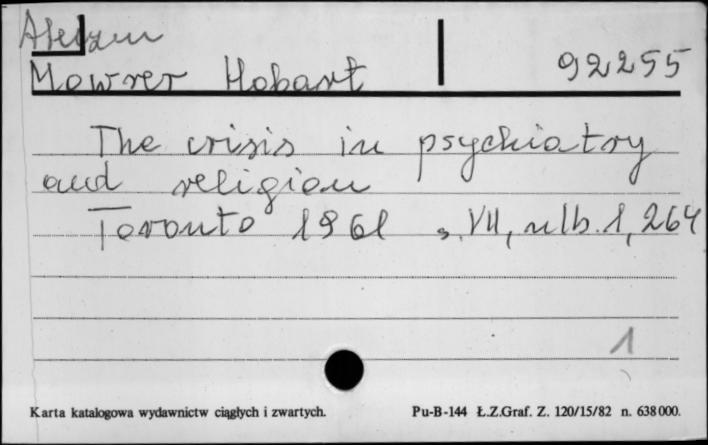 Mowrer Hobart 92255
The crisis in psychiatry
and religion
Toronto 1961 s. VII, nlb. 1, 264
1
Karta katalogowa wydawnictw ciągłych i zwartych. Pu-B-144 Ł.Z.Graf. Z. 120/15/82 n. 638000.